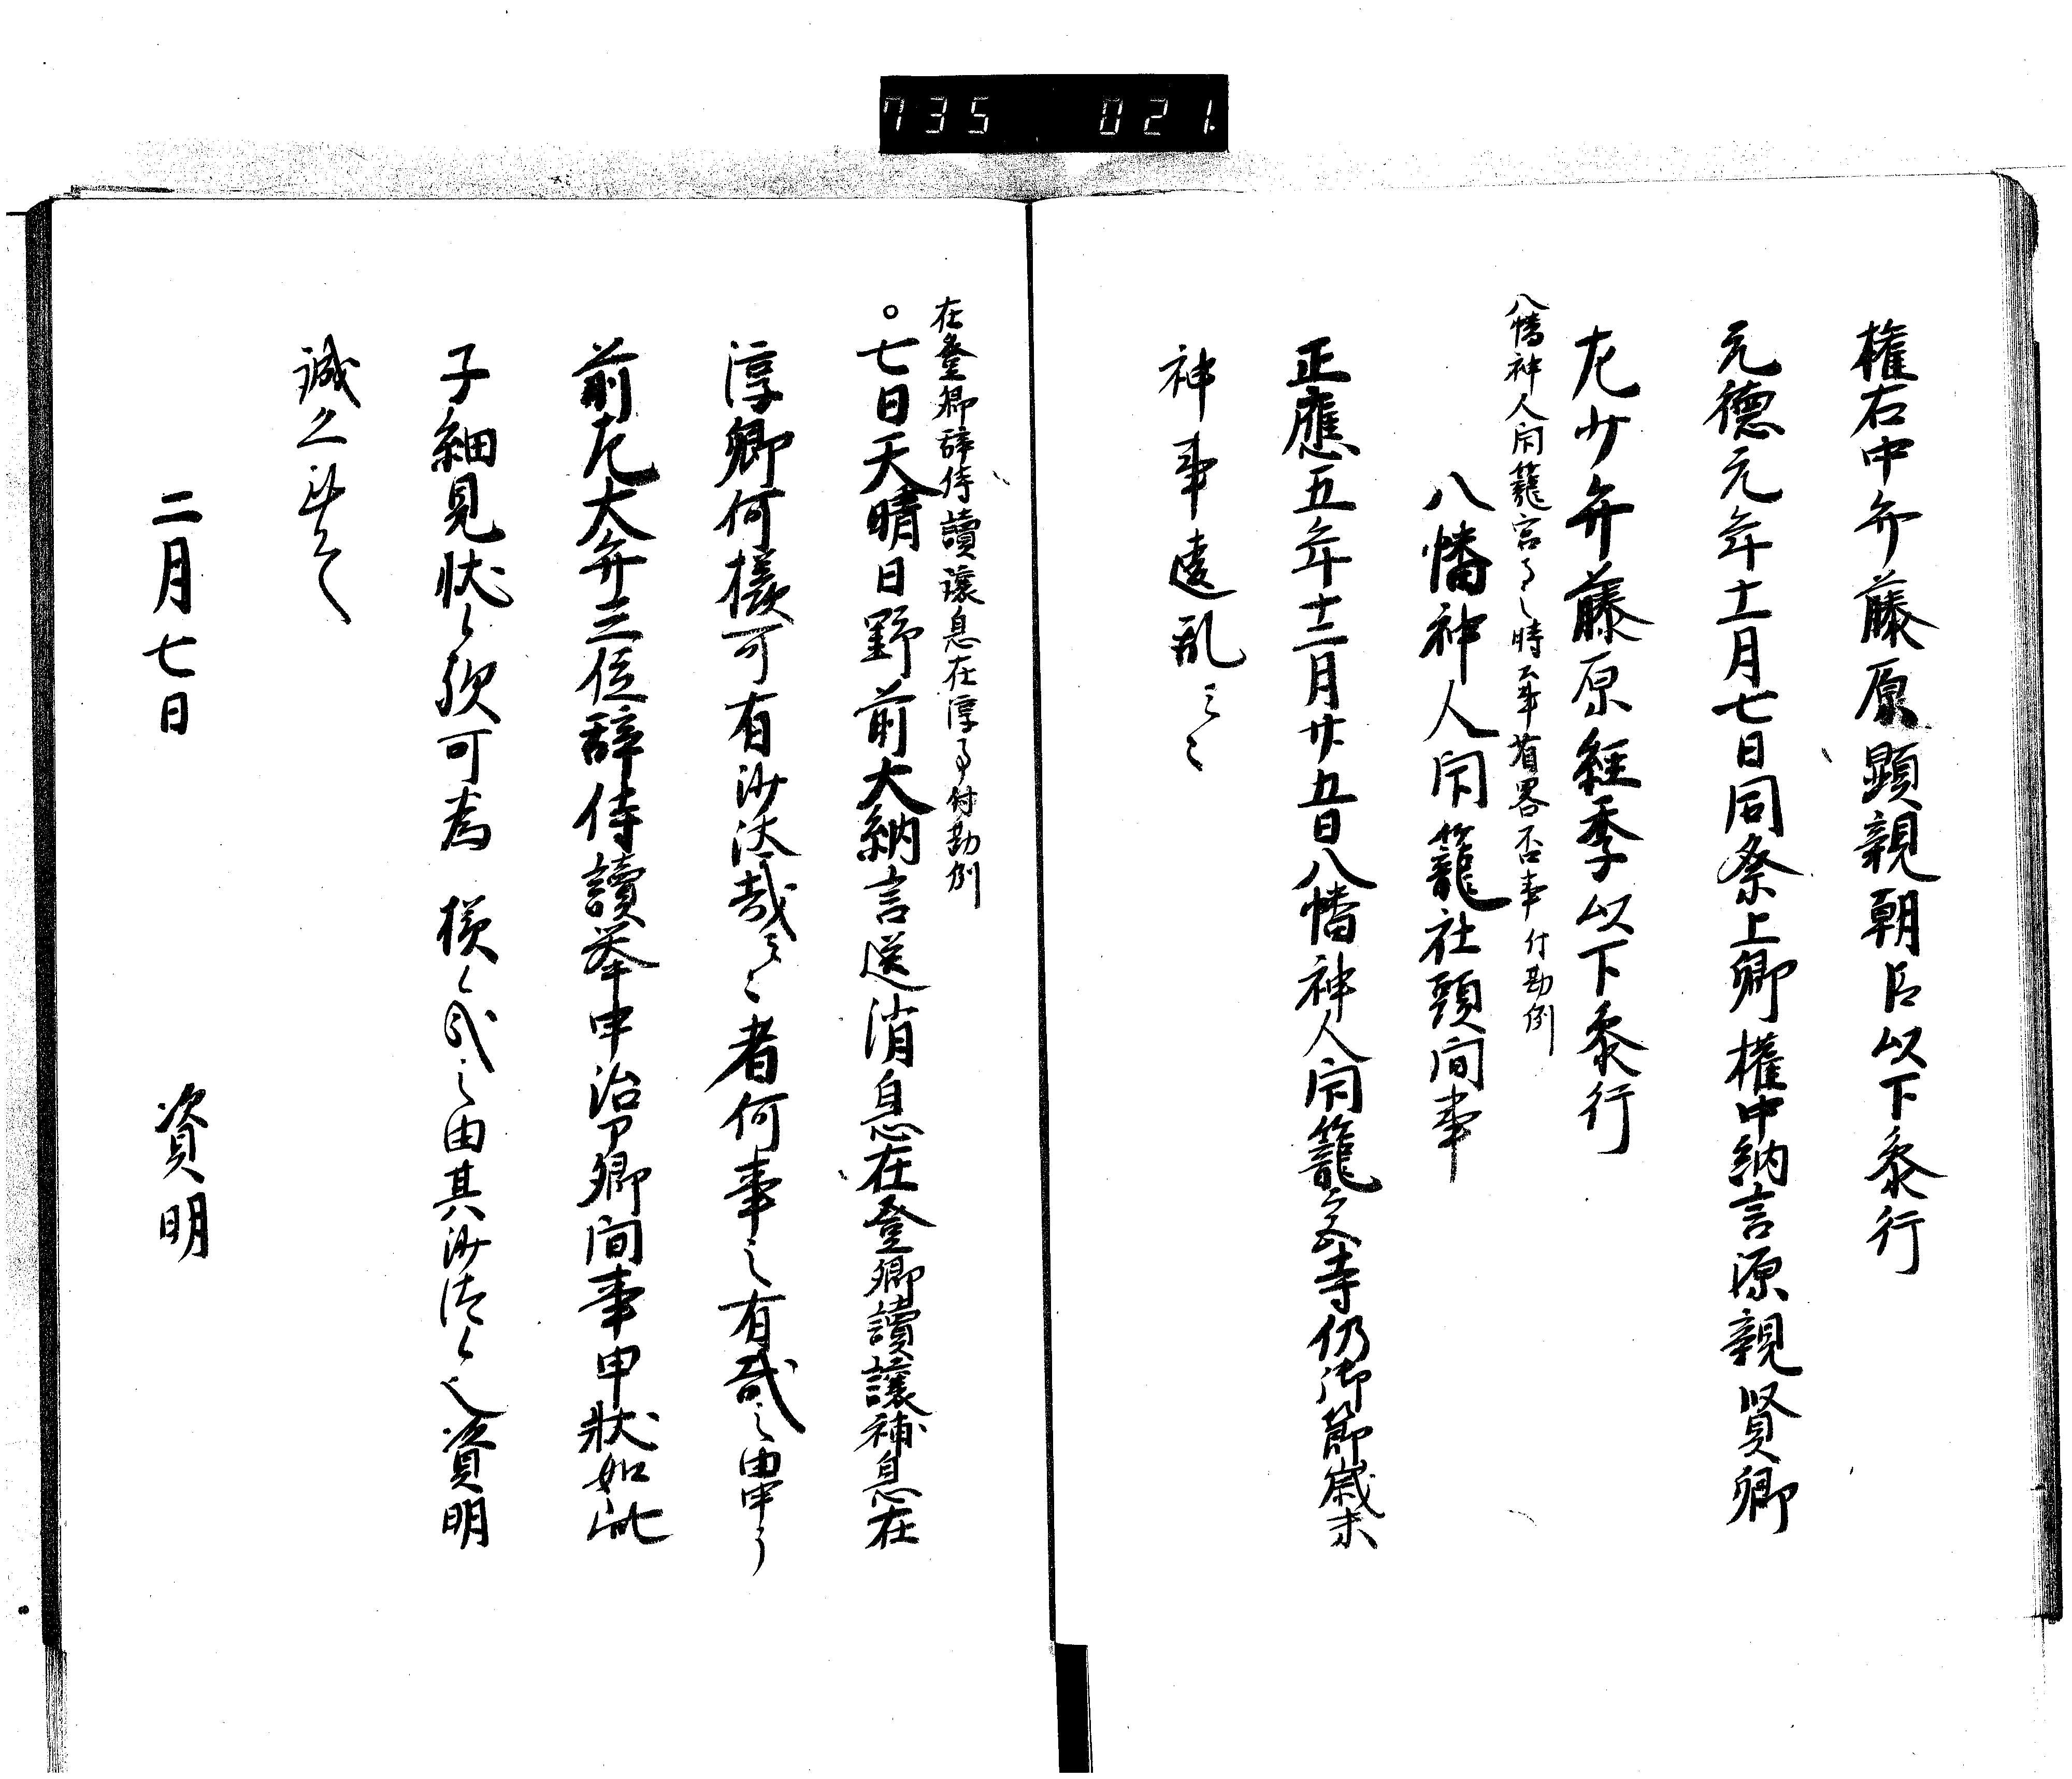 735 021
権右中弁藤原顕親朝臣以下参行
元徳元年十二月七日同祭上卿権中納言源親賢卿
左少弁藤原経季以下参行
八幡神人閇籠宮事時公事有畧否事付勘例
八幡神人閇籠社頭間事
正應五年十二月廿五日八幡神人閇籠寺仍御節歳末
神事違乱云々
在登卿辞侍讀譲息在淳事付勘例
。七日天晴日野前大納言送消息在登卿讀譲補息在
淳卿何様可有沙汰哉云々者何事之有哉之由申了
前左大弁三位辞侍讀挙申治部卿間事申状如此
子細見状候歟可為何様候哉之由其沙汰候也資明
誠恐謹言
二月七日 資明